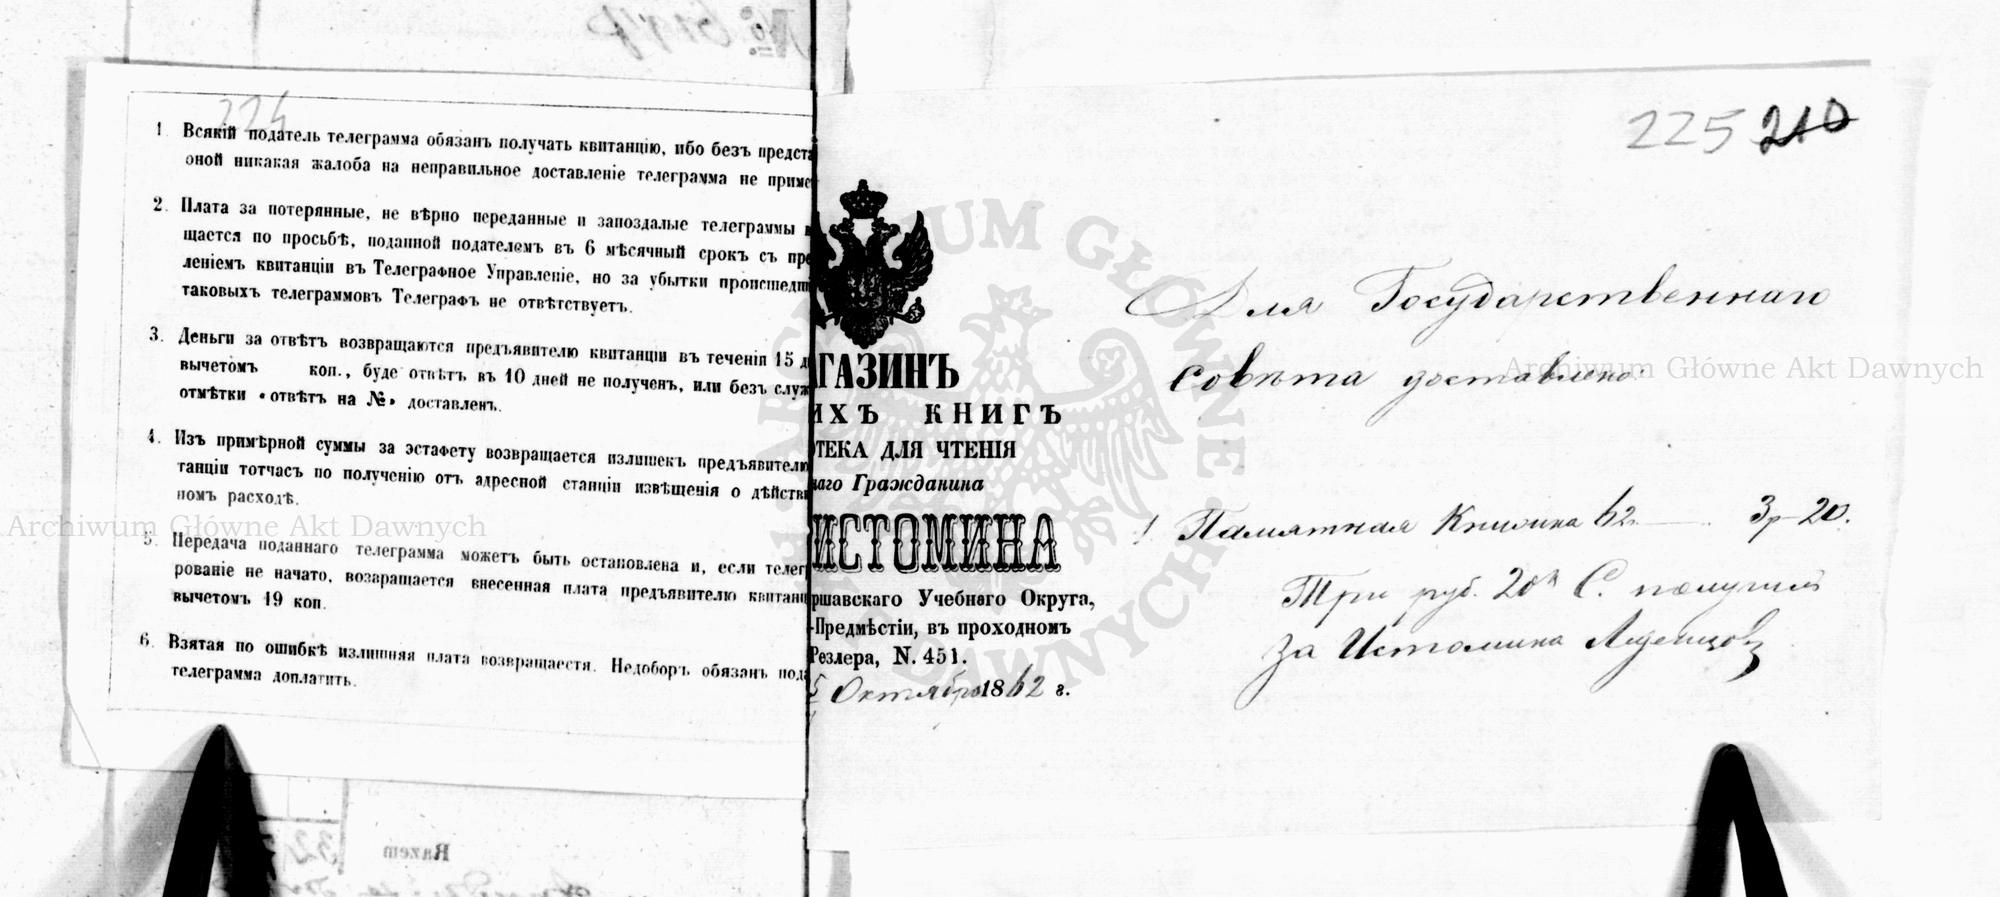 224
1. Всякій податель телеграмма обязанъ получать квитанцію, ибо безъ предста
оной никакая жалоба на неправильное доставленіе телеграмма не приме
2. Плата за потерянные, не вѣрно переданные и запоздалые телеграммы
щается по просьбѣ, поданной подателемъ въ 6 мѣсячный срокъ съ пре
леніемъ квитанціи въ Телеграфное Управленіе, но за убытки происшедш
таковыхъ телеграммовъ Телеграфъ не отвѣтствуетъ.
3. Деньги за отвѣтъ возвращаются предъявителю квитанціи въ теченіи 15 д
вычетомъ коп., буде отвѣтъ въ 10 дней не полученъ, или безъ служ
отмѣтки «отвѣтъ на №» доставленъ.
4. Изъ примѣрной суммы за эстафету возвращается излишекъ предъявителю
танціи тотчасъ по полученію отъ адресной станціи извѣщенія о дѣйстви
номъ расходѣ.
5. Передача поданнаго телеграмма можетъ быть остановлена и, если телег
рованіе не начато, возвращается внесенная плата предъявителю квитанц
вычетомъ 19 коп.
6. Взятая по ошибкѣ излишняя плата возвращается. Недоборъ обязанъ под
телеграмма доплатить.
Razem
ГАЗИНЪ
ИХЪ КНИГЪ
ОТЕКА ДЛЯ ЧТЕНІЯ
наго Гражданина
ИСТОМИНА
ршавскаго Учебнаго Округа,
-Предмѣстіи, въ проходномъ
Резлера, N. 451.
5 Октября 1862 г.
225 210
Для Государственнаго
Совѣта доставлено:
1 Памятная Книжка 62 г. 3 р 20.
Три руб. 20 к С. получилъ
за Истомина
Archiwum Główne Akt Dawnych
Archiwum Główne Akt Dawnych
ARCHIWUM GŁÓWNE AKT DAWNYCH